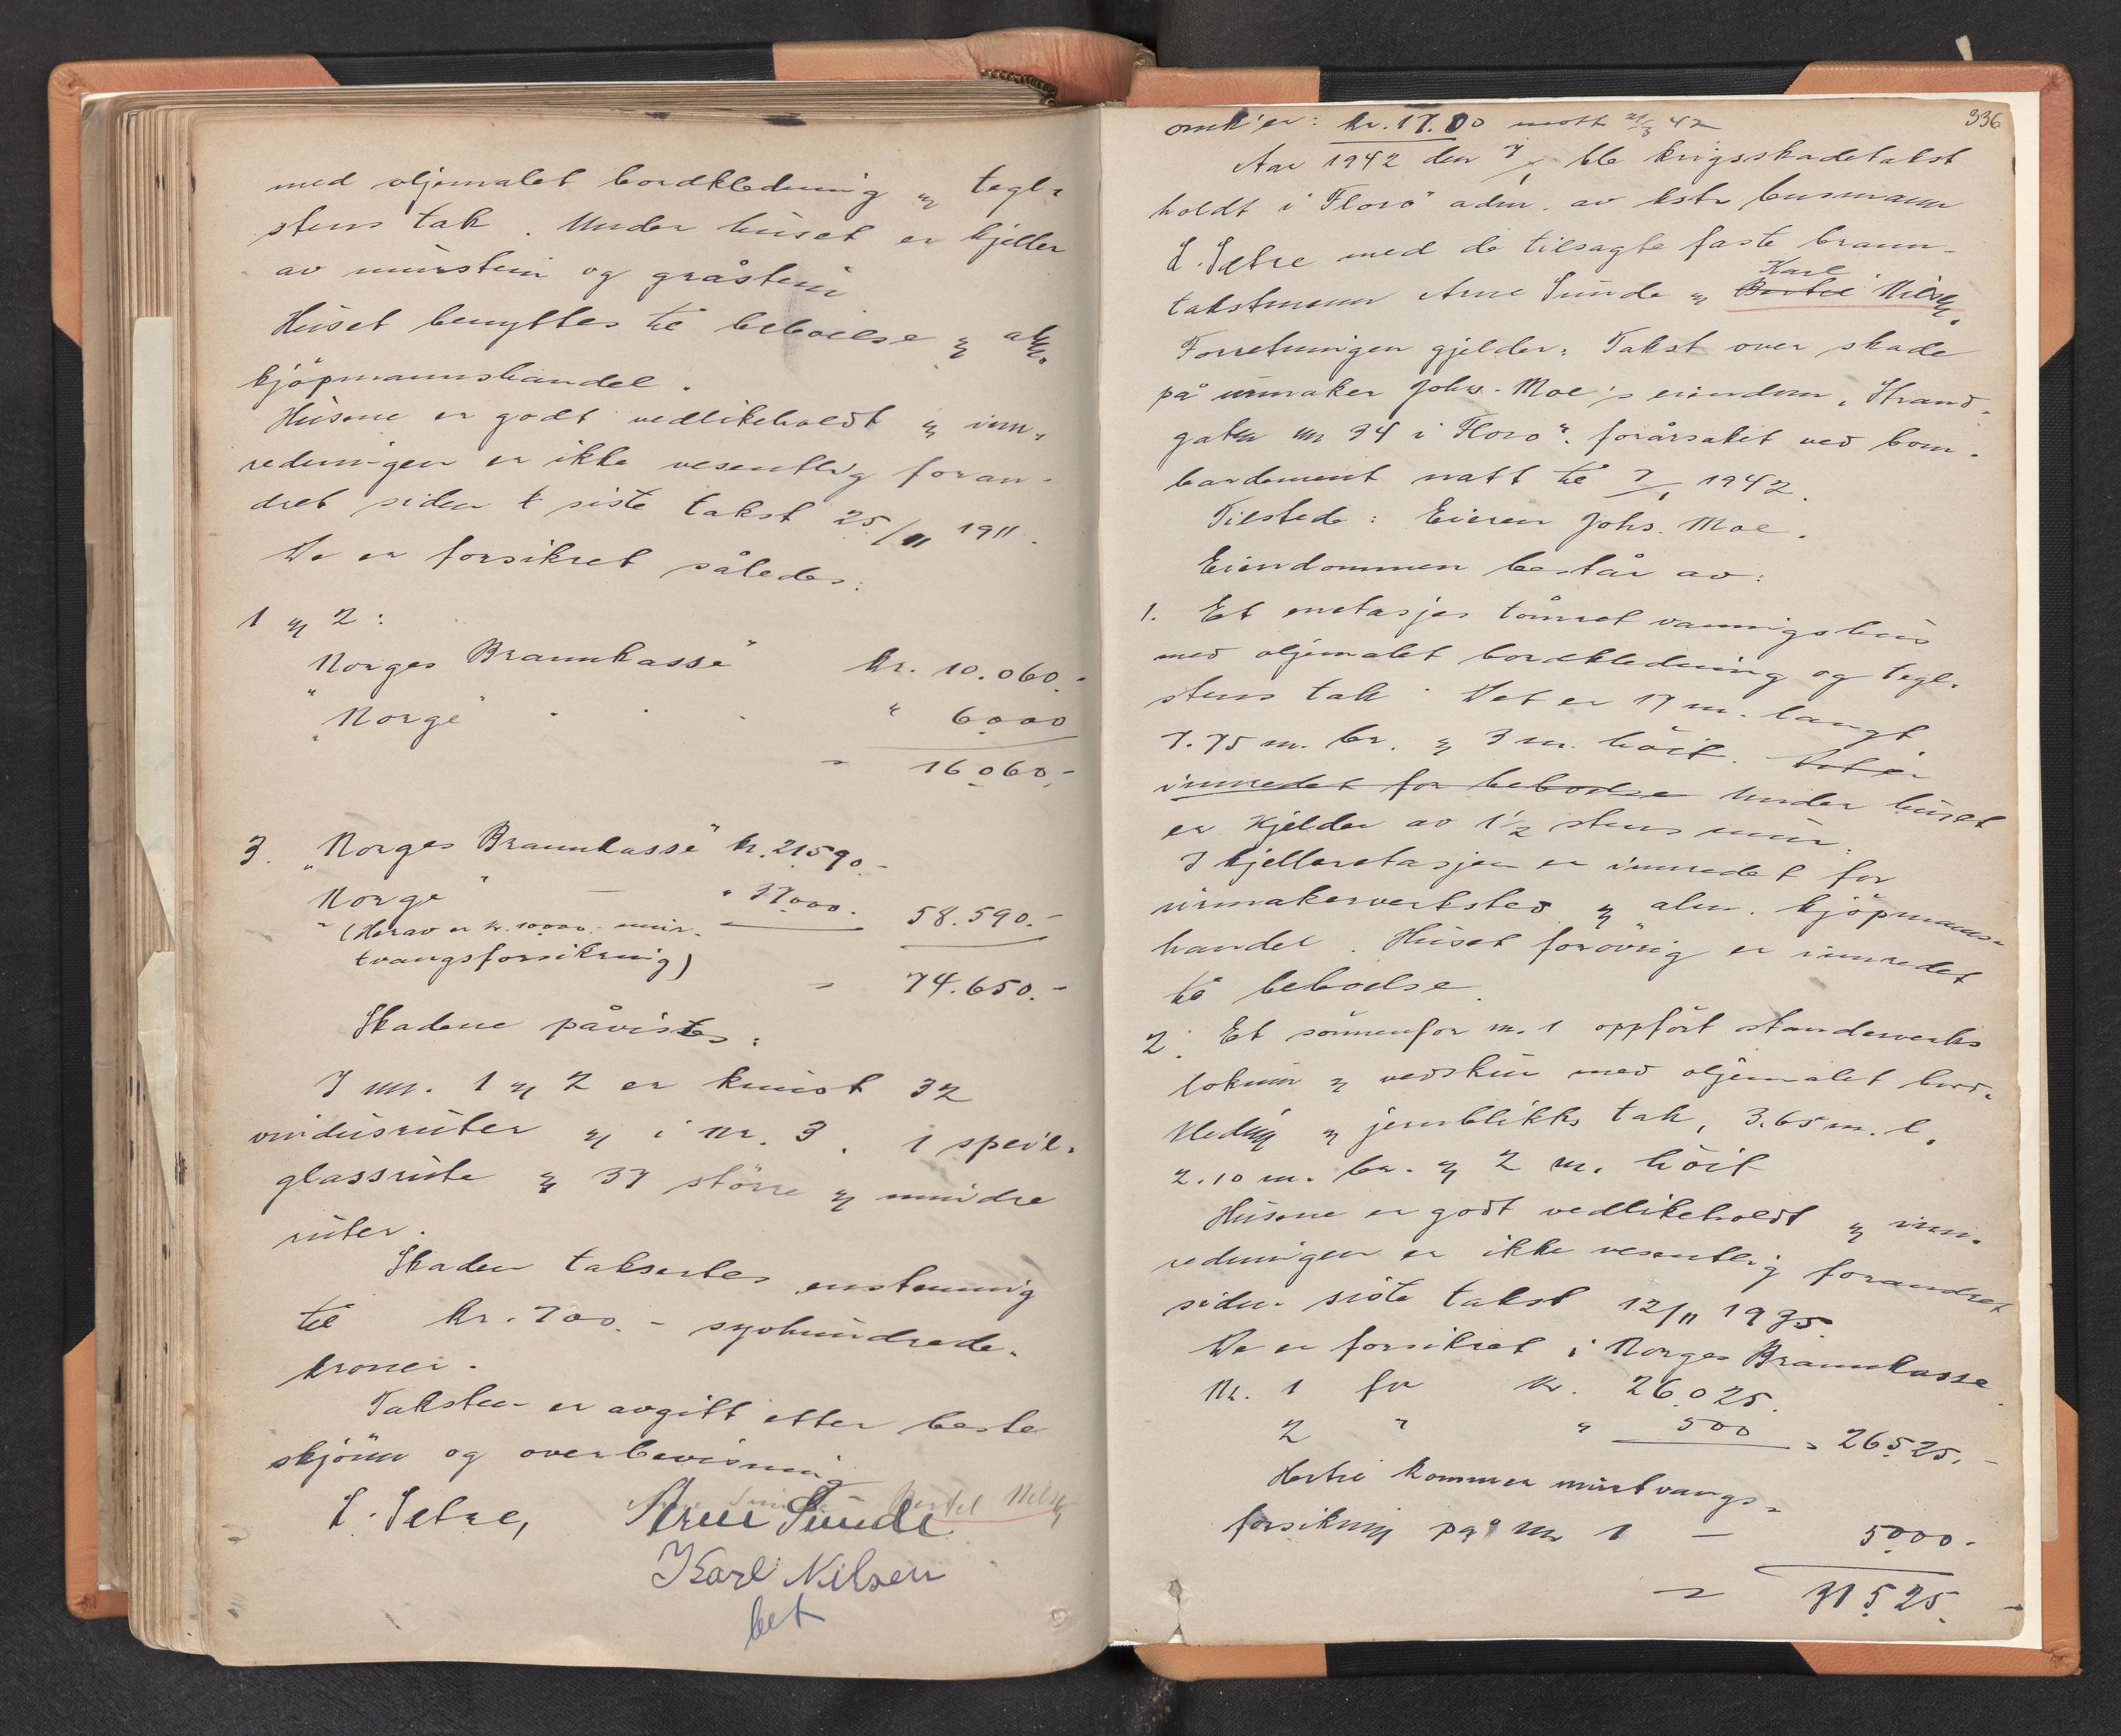 med oljemalet bordkledning og tegl-
stens tak. Under huset er kjeller
av mursten og gråsten
Huset benyttes til beboelse og alm.
kjöpmannshandel.
Husene er godt vedlikeholdt og inn-
redningen er ikke vesentlig foran-
dret siden siste takst 25/11 1911.
De er forsikret således:
1 og 2:
"Norges Brannkasse" kr. 10.060.-
"Norge" " 6000
- 16060.-
3. "Norges Brannkasse" kr. 21590.-
"Norge" — " 37000. 58.590.-
(Herav er kr. 10000.- mur-
tvangsforsikring)
- 74.650.-
Skadene påvistes:
I nr. 1 og 2 er knust 32
vindusruter og i nr. 3. 1 speil-
glassrute og 37 större og mindre
ruter.
Skaden taksertes enstemmig
til kr. 700.- syvhundrede-
kroner.
Taksten er avgitt etter beste
skjönn og overbevisning
L. Setre, Arne Sunde Bertel Nilsen
Karl Nilsen
bet
336
omk'er: kr. 17.00 mott 21/3 42
Aar 1942 den 7/1 ble krigsskadetakst
holdt i Florö adm. av kst. lensmann
L. Setre med de tilsagte faste brann-
takstmenn Arne Sunde og Bertel Karl Nilsen.
Forretningen gjelder: Takst over skade
på urmaker Johs. Moe's eiendom "Strand-
gaten nr 34 i Floro". forårsaket ved bom-
bardement natt til 7/1 1942.
Tilstede: Eieren Johs. Moe.
Eiendommen består av:
1. Et enetasjes tömret våningshus
med oljemalet bordkledning og tegl-
stens tak. Det er 17 m. langt
7.75 m. br. og 3 m. höit. Det er
innredet for beboelse Under huset
er Kjelder av 1 1/2 stens mur.
I kjelleretasjen er innredet for
urmakerverksted og alm. kjöpmanns-
handel. Huset forövrig er innredet
til beboelse.
2. Et sönnenfor nr. 1 oppfört standerverks
lokum og vedskur med oljemalet bord-
kledning og jernblikks tak, 3.65 m. l.
2.10 m. br. og 2 m. höit
Husene er godt vedlikeholdt og inn-
redningen er ikke vesentlig forandret
siden siste takst 12/11 1935.
De er forsikret i Norges Brannkasse
Nr. 1 for kr. 26025.
2 " " 500 = 26525.-
Hertil kommer murtvangs-
forsikring på nr 1 — 5000.-
= 31525.